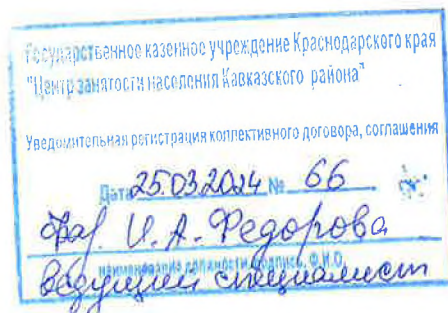 Государственное казенное учреждение Краснодарского края
"Центр занятости населения Кавказского района"
Уведомительная регистрация коллективного договора, соглашения
Дата 25.03.2024 № 66
И.А. Федорова
наименование должности, подпись, Ф.И.О.
ведущий специалист